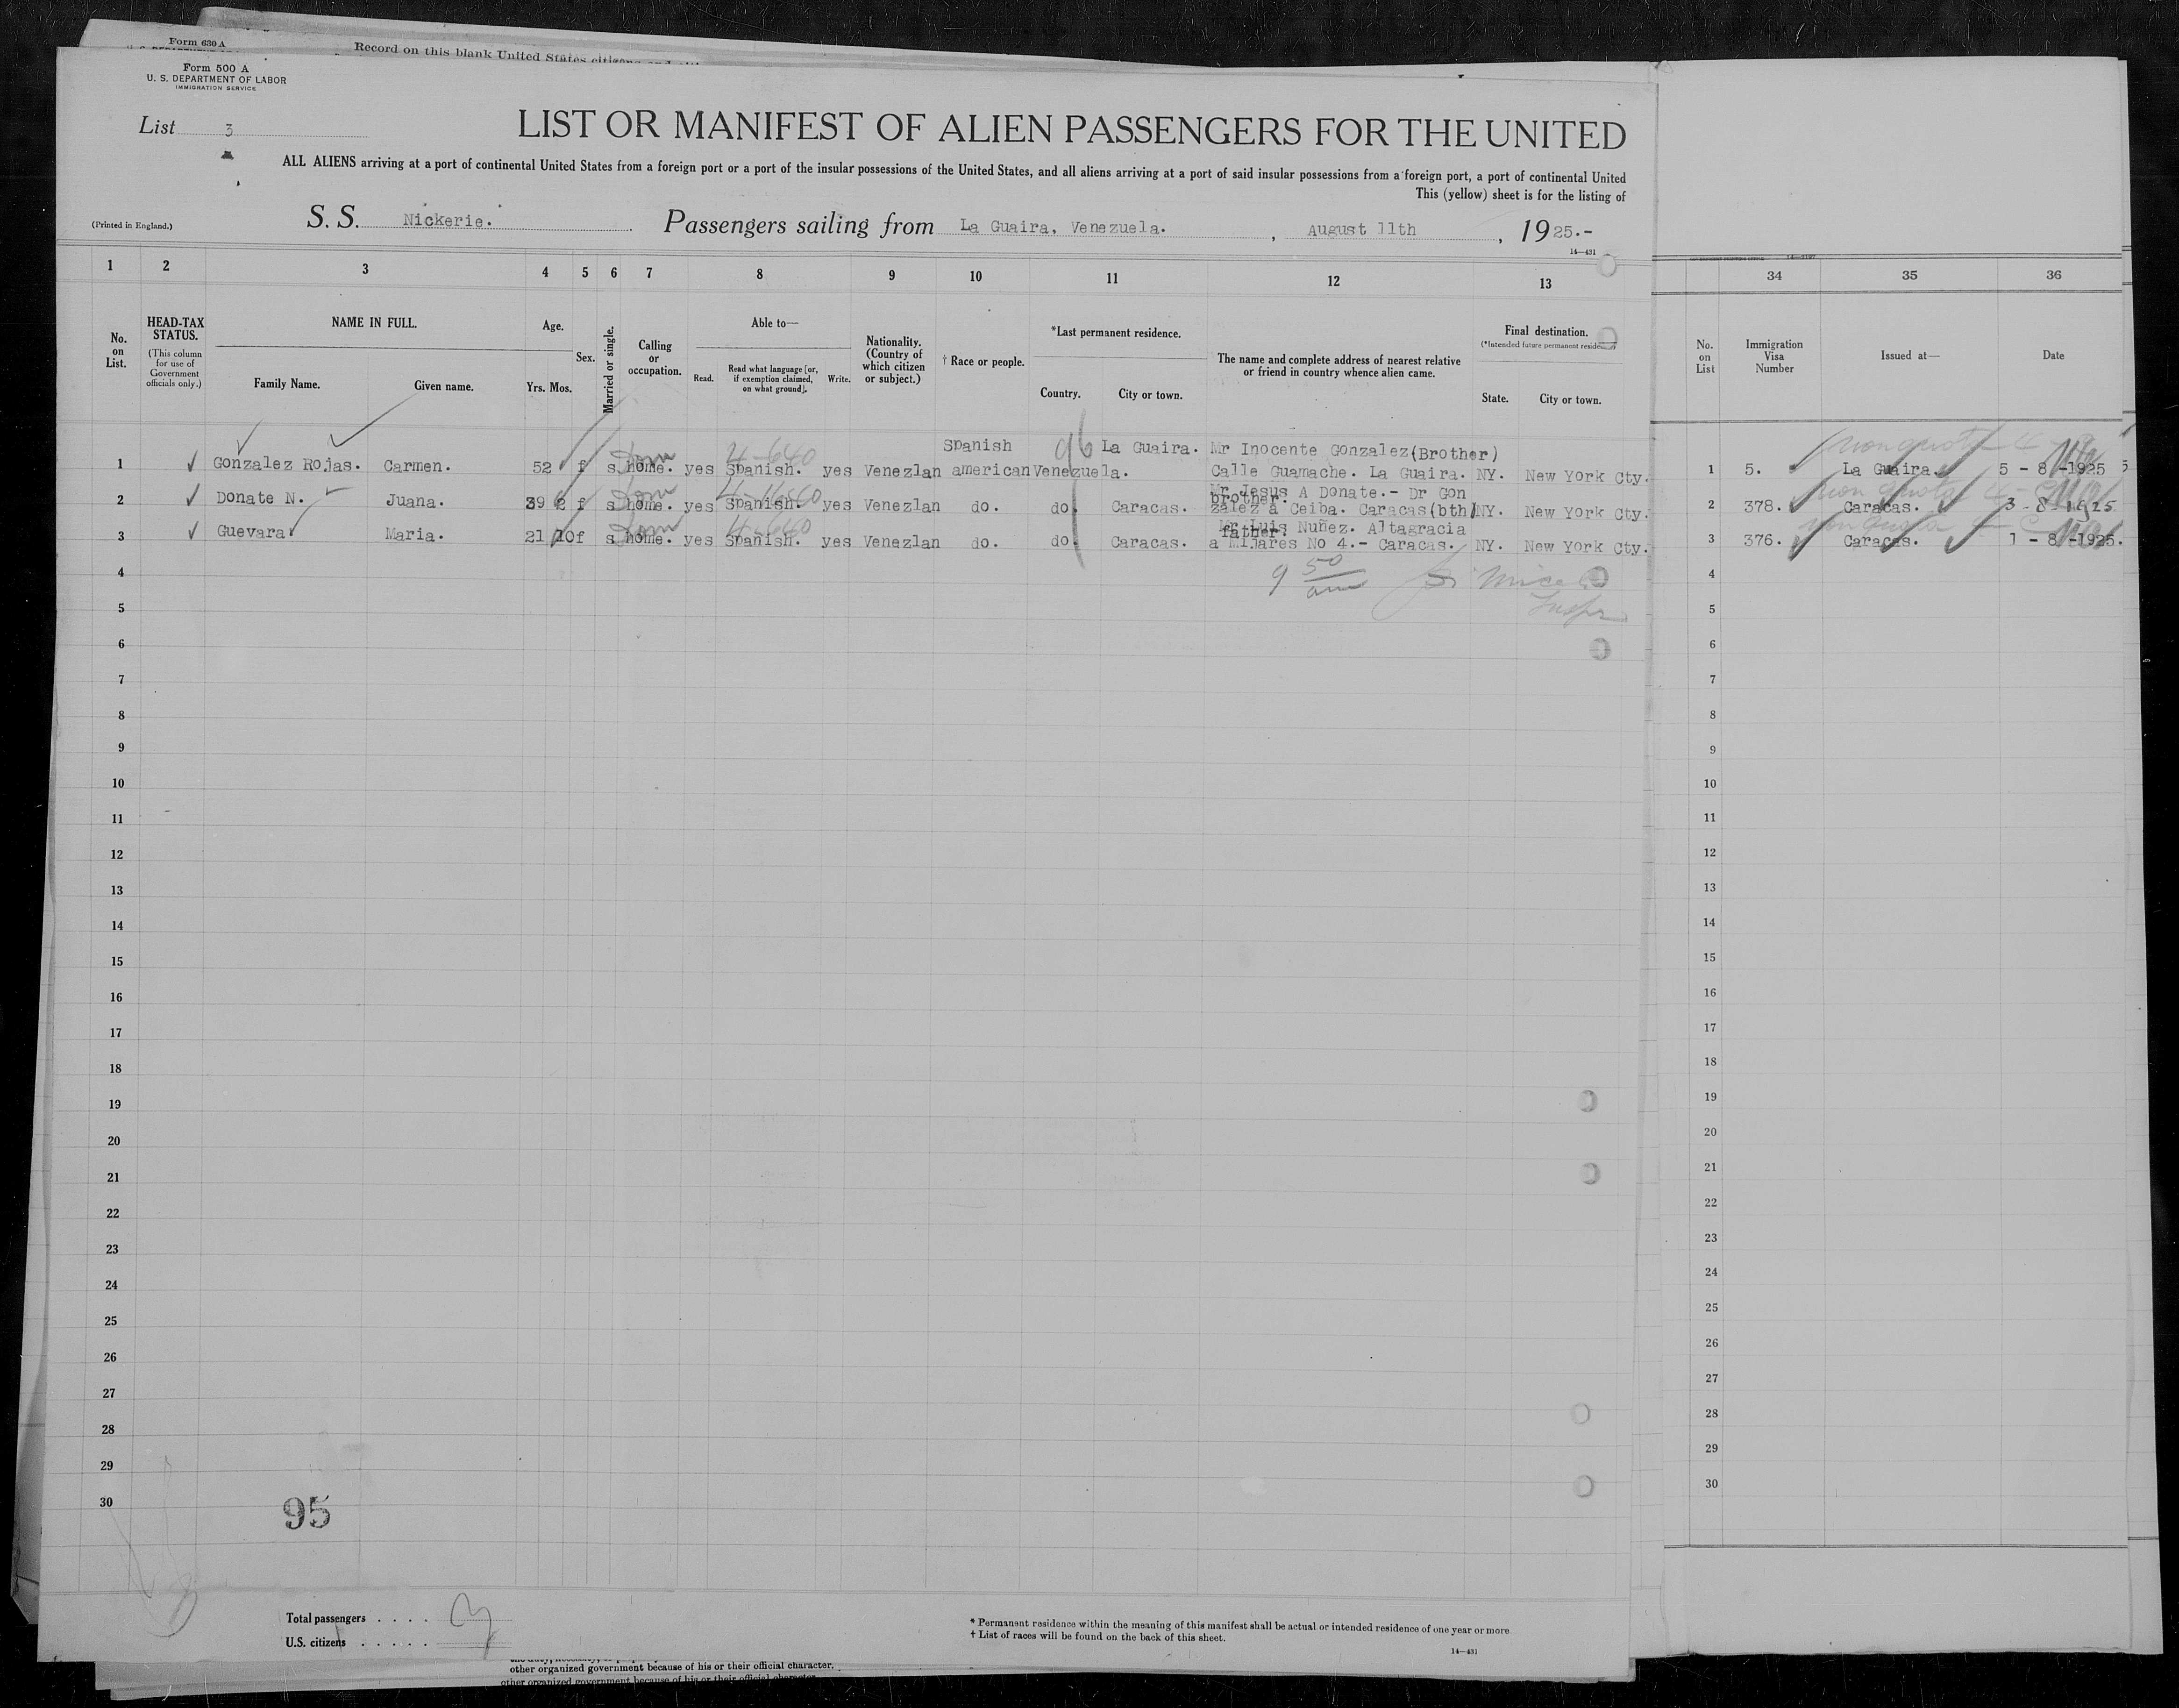 Form 630 A
Record on this blank United States citizens and
Form 500 A
U. S. DEPARTMENT OF LABOR
IMMIGRATION SERVICE
List 3
LIST OR MANIFEST OF ALIEN PASSENGERS FOR THE UNITED
ALL ALIENS arriving at a port of continental United States from a foreign port or a port of the insular possessions of the United States, and all aliens arriving at a port of said insular possessions from a foreign port, a port of continental United
This (yellow) sheet is for the listing of
(Printed in England.)
S. S. Nickerie. Passengers sailing from La Guaira, Venezuela. , August 11th , 1925.-
14—431
1 2 3 4 5 6 7 8 9 10 11 12 13
No. on List.
HEAD-TAX STATUS.
(This column for use of Government officials only.)
NAME IN FULL.
Family Name. Given name.
Age.
Yrs. Mos.
Sex.
Married or single.
Calling or occupation.
Able to—
Read. Read what language [or, if exemption claimed, on what ground]. Write.
Nationality. (Country of which citizen or subject.)
† Race or people.
*Last permanent residence.
Country. City or town.
The name and complete address of nearest relative or friend in country whence alien came.
Final destination.
(*Intended future permanent residence)
State. City or town.
34 35 36
No. on List
Immigration Visa Number
Issued at—
Date
1 Gonzalez Rojas. Carmen. 52 f s home. Dom yes Spanish. 4-640 yes Venezlan Spanish american Venezuela. 96 La Guaira. Mr Inocente Gonzalez(Brother)
Calle Guamache. La Guaira. NY. New York Cty.
2 Donate N. Juana. 39 2 f s home. Dom yes Spanish. yes Venezlan do. do. Caracas. Mr Jesus A Donate.- Dr Gon
brother.
zalez a Ceiba. Caracas(bth) NY. New York Cty.
3 Guevara Maria. 21 10 f s home. Dom yes Spanish. 4-640 yes Venezlan do. do. Caracas. Mr Luis Nuñez. Altagracia
father.
a Mijares No 4.- Caracas. NY. New York Cty.
9 50 am
Inspr
1 5. La Guaira. 5 - 8 -1925
non quota
2 378. Caracas. 3 - 8 - 1925
non quota
3 376. Caracas. 1 - 8 -1925.
non quota
4
5
6
7
8
9
10
11
12
13
14
15
16
17
18
19
20
21
22
23
24
25
26
27
28
29
30
4
5
6
7
8
9
10
11
12
13
14
15
16
17
18
19
20
21
22
23
24
25
26
27
28
29
30
95
Total passengers . . . .
U.S. citizens . . . . .
* Permanent residence within the meaning of this manifest shall be actual or intended residence of one year or more
† List of races will be found on the back of this sheet.
14—431
other organized government because of his or their official character.
other organized government because of his or their official character